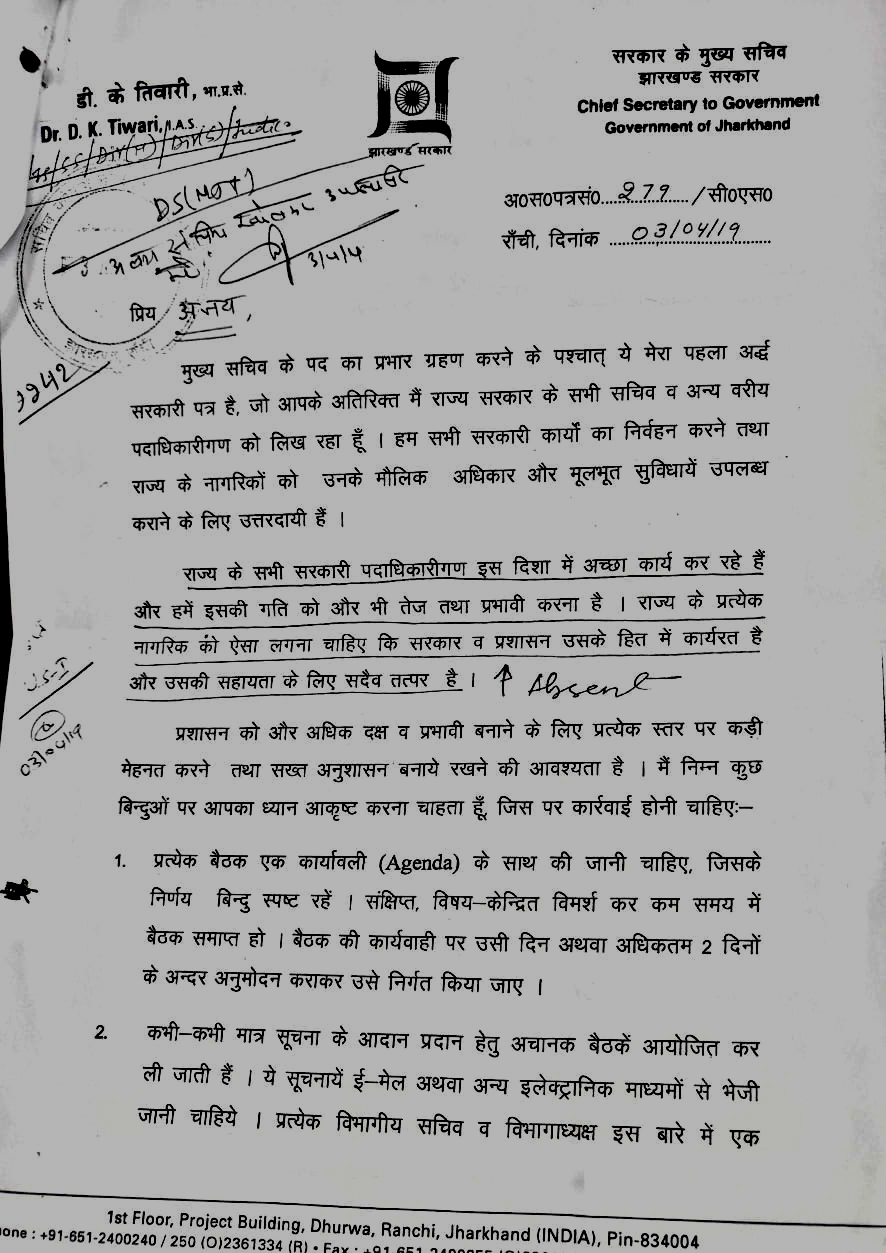 डी. के तिवारी, भा.प्र.से.
Dr. D. K. Tiwari, I.A.S.
झारखण्ड सरकार
सरकार के मुख्य सचिव
झारखण्ड सरकार
Chief Secretary to Government
Government of Jharkhand
DS(Mgt)
3/4/4
अ०स०पत्रसं०....279..../सी०एस०
राँची, दिनांक ....03/04/19....
प्रिय अजय,
मुख्य सचिव के पद का प्रभार ग्रहण करने के पश्चात् ये मेरा पहला अर्द्ध
सरकारी पत्र है, जो आपके अतिरिक्त मैं राज्य सरकार के सभी सचिव व अन्य वरीय
पदाधिकारीगण को लिख रहा हूँ । हम सभी सरकारी कार्यों का निर्वहन करने तथा
राज्य के नागरिकों को उनके मौलिक अधिकार और मूलभूत सुविधायें उपलब्ध
कराने के लिए उत्तरदायी हैं ।
राज्य के सभी सरकारी पदाधिकारीगण इस दिशा में अच्छा कार्य कर रहे हैं
और हमें इसकी गति को और भी तेज तथा प्रभावी करना है । राज्य के प्रत्येक
नागरिक को ऐसा लगना चाहिए कि सरकार व प्रशासन उसके हित में कार्यरत है
और उसकी सहायता के लिए सदैव तत्पर है । ↑ Absent
03/04/19
प्रशासन को और अधिक दक्ष व प्रभावी बनाने के लिए प्रत्येक स्तर पर कड़ी
मेहनत करने तथा सख्त अनुशासन बनाये रखने की आवश्यता है । मैं निम्न कुछ
बिन्दुओं पर आपका ध्यान आकृष्ट करना चाहता हूँ, जिस पर कार्रवाई होनी चाहिएः–
1. प्रत्येक बैठक एक कार्यावली (Agenda) के साथ की जानी चाहिए, जिसके
निर्णय बिन्दु स्पष्ट रहें । संक्षिप्त, विषय–केन्द्रित विमर्श कर कम समय में
बैठक समाप्त हो । बैठक की कार्यवाही पर उसी दिन अथवा अधिकतम 2 दिनों
के अन्दर अनुमोदन कराकर उसे निर्गत किया जाए ।
2. कभी–कभी मात्र सूचना के आदान प्रदान हेतु अचानक बैठकें आयोजित कर
ली जाती हैं । ये सूचनायें ई–मेल अथवा अन्य इलेक्ट्रानिक माध्यमों से भेजी
जानी चाहिये । प्रत्येक विभागीय सचिव व विभागाध्यक्ष इस बारे में एक
1st Floor, Project Building, Dhurwa, Ranchi, Jharkhand (INDIA), Pin-834004
one : +91-651-2400240 / 250 (O)2361334 (R) • Fax : +91-651-